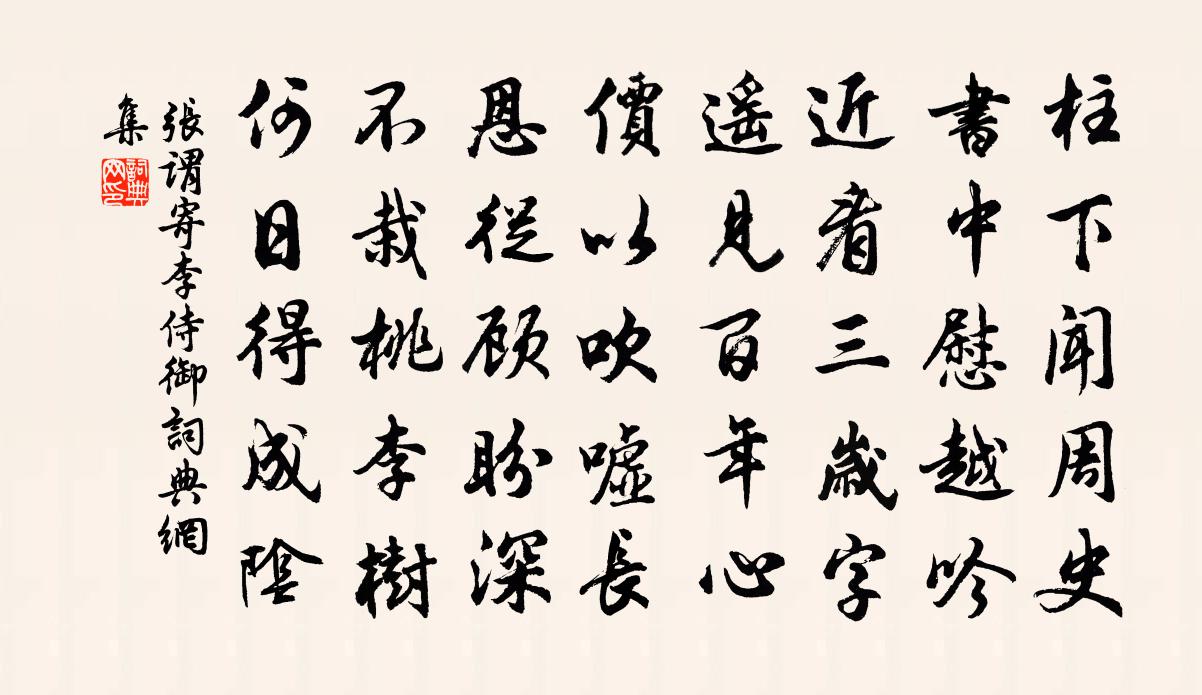 柱下聞周史
書中慰越吟
近看三歲字
遥見百年心
價以吹噓長
恩從顾盼深
不栽桃李樹
何日得成陰
張謂寄李侍御詞典網
集
詞典網印